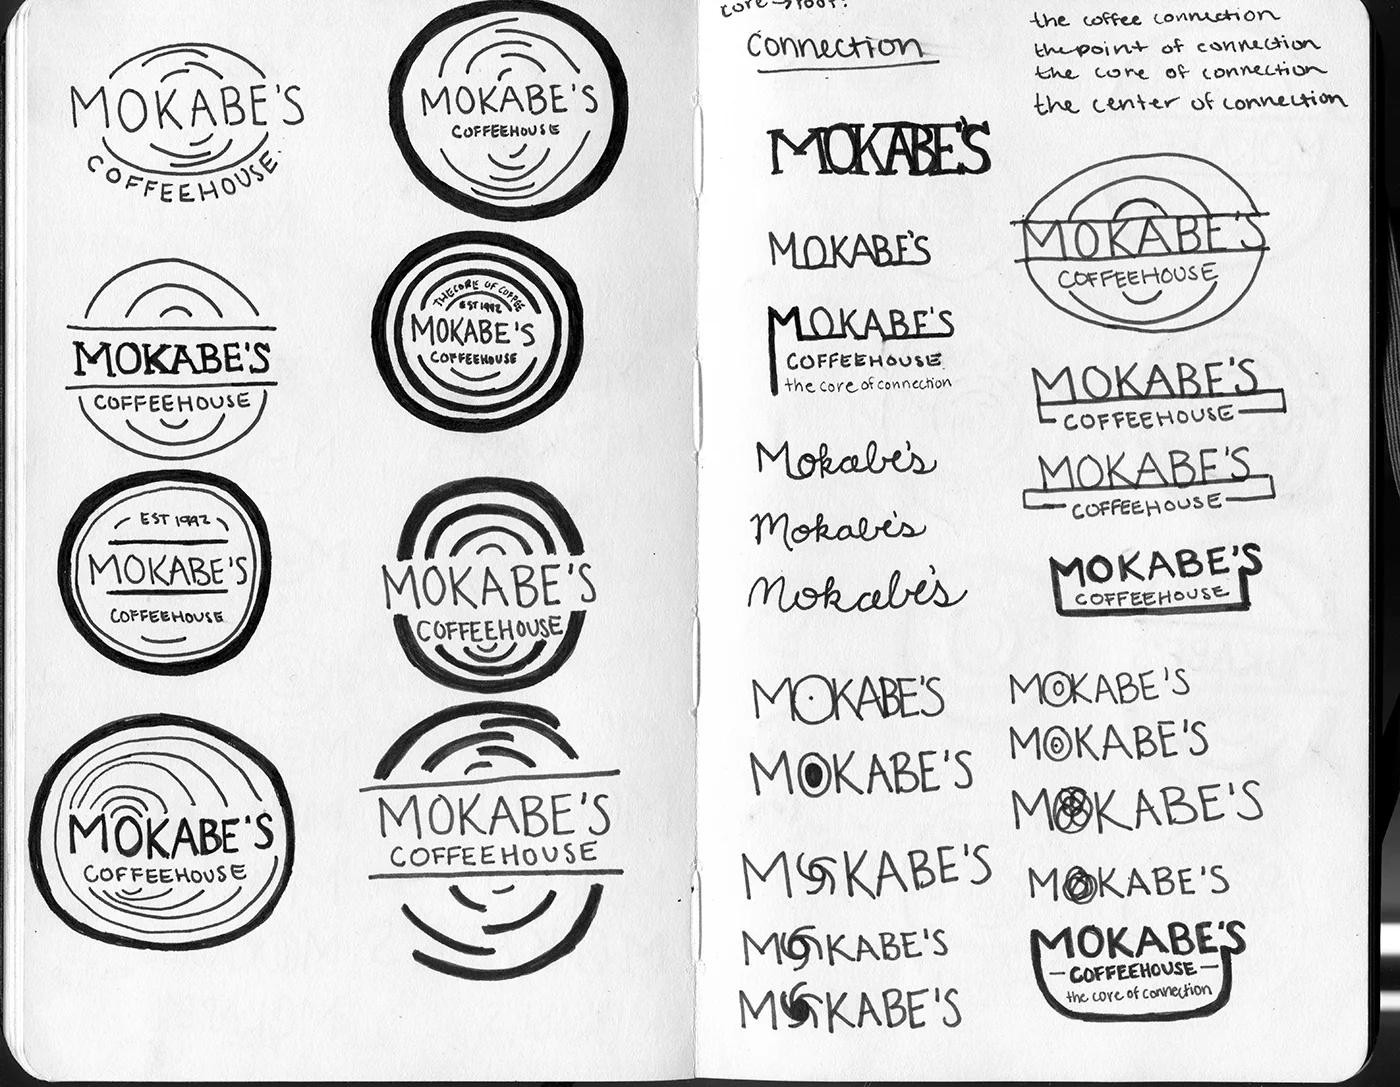 MOKABE'S
COFFEEHOUSE
MOKABE'S
COFFEEHOUSE
MOKABE'S
COFFEEHOUSE
THE CORE OF COFFEE
EST 1992
MOKABE'S
COFFEEHOUSE
EST 1992
MOKABE'S
COFFEEHOUSE
MOKABE'S
COFFEEHOUSE
MOKABE'S
COFFEEHOUSE
MOKABE'S
COFFEEHOUSE
core → root?
Connection
MOKABE'S
MOKABE'S
MOKABE'S
COFFEEHOUSE
the core of connection
Mokabe's
Mokabe's
Mokabe's
MOKABE'S
MOKABE'S
MOKABE'S
MOKABE'S
MOKABE'S
the coffee connection
the point of connection
the core of connection
the center of connection
MOKABE'S
COFFEEHOUSE
MOKABE'S
COFFEEHOUSE
MOKABE'S
COFFEEHOUSE
MOKABE'S
COFFEEHOUSE
MOKABE'S
MOKABE'S
MOKABE'S
MOKABE'S
MOKABE'S
COFFEEHOUSE
the core of connection